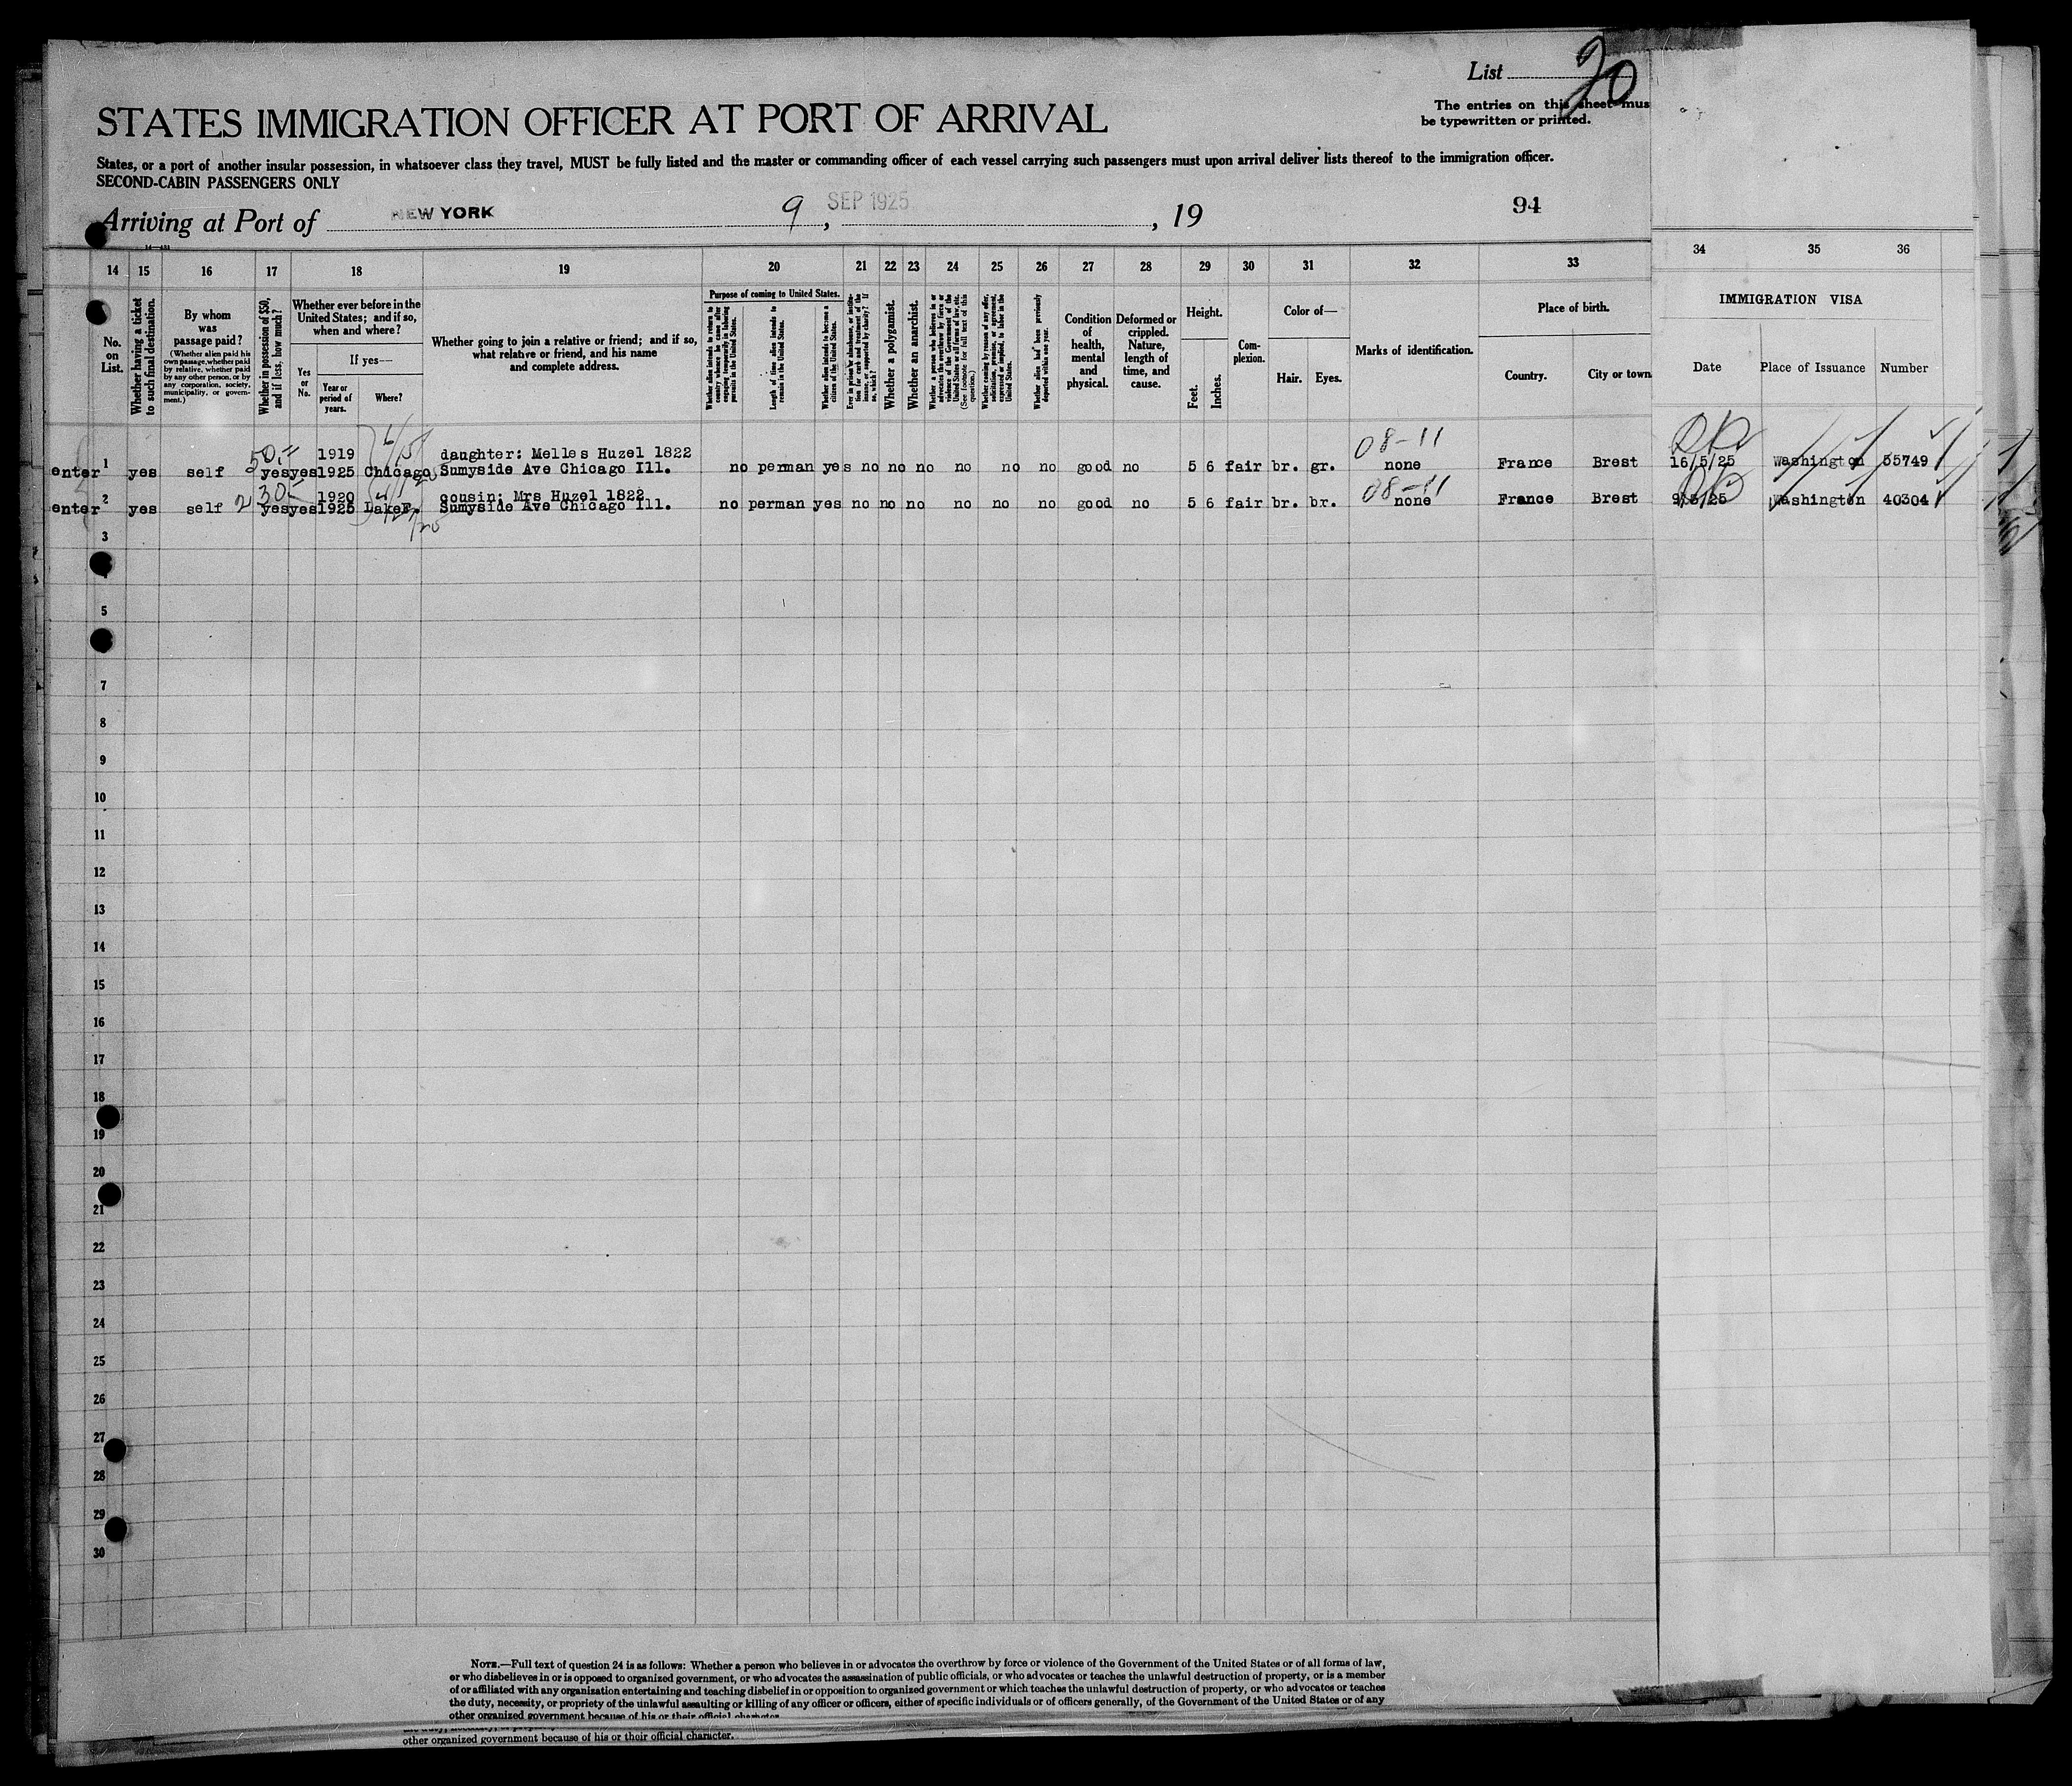 List 20
The entries on this sheet mus
be typewritten or printed.
STATES IMMIGRATION OFFICER AT PORT OF ARRIVAL
States, or a port of another insular possession, in whatsoever class they travel, MUST be fully listed and the master or commanding officer of each vessel carrying such passengers must upon arrival deliver lists thereof to the immigration officer.
SECOND-CABIN PASSENGERS ONLY
Arriving at Port of NEW YORK 9, SEP 1925, 19
94
14 15 16 17 18 19 20 21 22 23 24 25 26 27 28 29 30 31 32 33 34 35 36
No. on List.
Whether having a ticket to such final destination.
By whom was passage paid?
(Whether alien paid his own passage, whether paid by relative, whether paid by any other person, or by any corporation, society, municipality, or government.)
Whether in possession of $50, and if less, how much?
Whether ever before in the United States; and if so, when and where?
Yes or No.
If yes—
Year or period of years.
Where?
Whether going to join a relative or friend; and if so, what relative or friend, and his name and complete address.
Purpose of coming to United States.
Whether alien intends to return to country whence he came after engaging temporarily in laboring pursuits in the United States.
Length of time alien intends to remain in the United States.
Whether alien intends to become a citizen of the United States.
Whether a polygamist.
Whether an anarchist.
Condition of health, mental and physical.
Deformed or crippled. Nature, length of time, and cause.
Height.
Feet.
Inches.
Complexion.
Color of—
Hair.
Eyes.
Marks of identification.
Place of birth.
Country.
City or town
IMMIGRATION VISA
Date
Place of Issuance
Number
enter 1 yes self 50.- yes yes 1919 1925 Chicago daughter: Melles Huzel 1822 Sunyside Ave Chicago Ill. no perman yes no no no no no no good no 5 6 fair br. gr. 08-11 none France Brest 16/5/25 Washington 55749
enter 2 yes self 230- yes yes 1920 1925 LakeF. cousin: Mrs Huzel 1822 Sunyside Ave Chicago Ill. no perman yes no no no no no no good no 5 6 fair br. br. 08-11 none France Brest Washington 40304
3
5
7
8
9
10
11
12
13
14
15
16
17
18
19
20
21
22
23
24
25
26
27
28
29
30
NOTE.—Full text of question 24 is as follows: Whether a person who believes in or advocates the overthrow by force or violence of the Government of the United States or of all forms of law,
or who disbelieves in or is opposed to organized government, or who advocates the assassination of public officials, or who advocates or teaches the unlawful destruction of property, or is a member
of or affiliated with any organization entertaining and teaching disbelief in or opposition to organized government or which teaches the unlawful destruction of property, or who advocates or teaches
the duty, necessity, or propriety of the unlawful assaulting or killing of any officer or officers, either of specific individuals or of officers generally, of the Government of the United States or of any
other organized government because of his or their official character.
other organized government because of his or their official character.